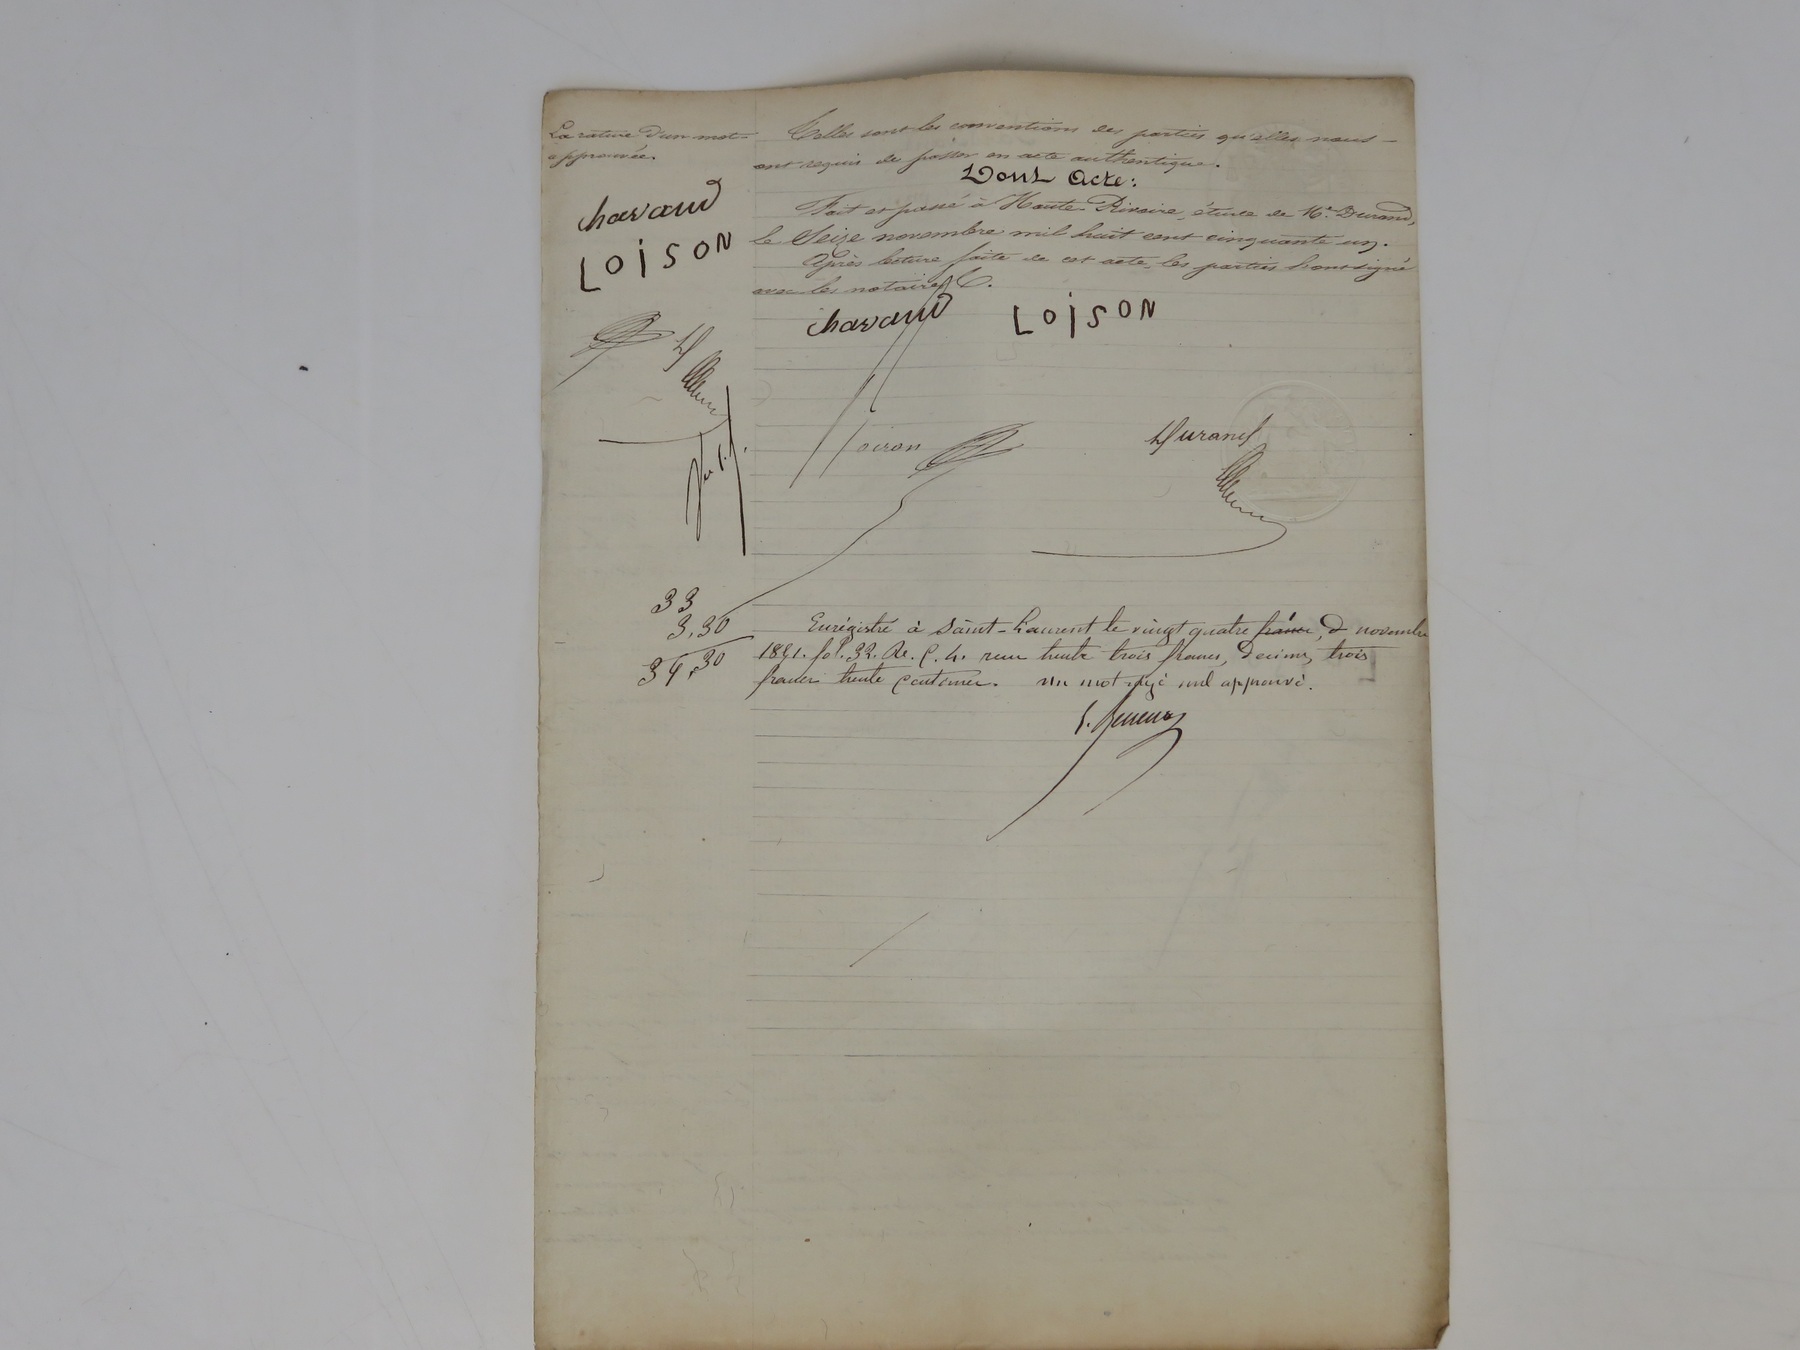 La rature d'un mot
approuvée.
chavand
LOISON
Telles sont les conventions des parties qu'elles nous
ont requis de passer en acte authentique.
Dont Acte:
Fait et passé à Haute-Rivoire, étude de Me Durand,
le Seize novembre mil huit cent cinquante un.
Après lecture faite de cet acte, les parties l'ont signé
avec les notaires.
chavand LOISON
Durand
33
3,30
34,30
Enrégistré à Saint-Laurent le vingt quatre franc, novembre
1851. fol. 32. Ro. C. 4. reçu trente trois francs, decimes, trois
francs trente centimes. un mot rayé nul approuvé.